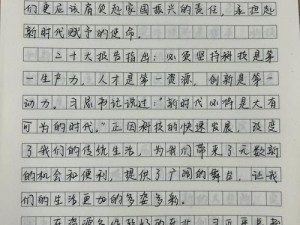 们更应该肩负起家国振兴的责任，承担起
新时代赋予的使命。
二十大报告指出：必须坚持科技是第
一生产力，人才是第一资源，创新是第一
动力。习总书记说过："新时代必将是大有
可为的时代。"正因科技的快速发展，改变
了我们的传统生活，为我们带来了无数新
的机会和便利，提供了广阔的舞台，让我
们的生活更加的多姿多彩。